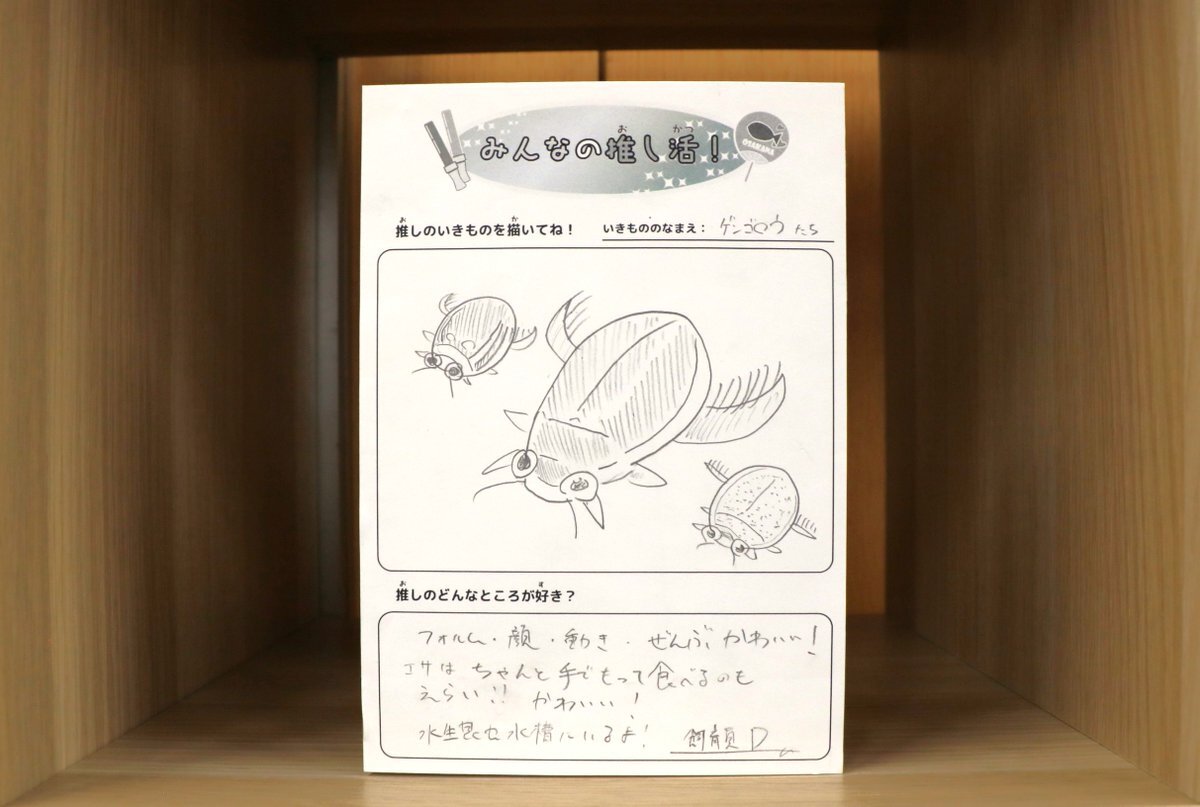 みんなの推し活！
おかつ
OTAKANA
推しのいきものを描いてね！
おか
いきもののなまえ：ゲンゴロウたち
推しのどんなところが好き？
おす
フォルム・顔・動き・ぜんぶかわいい！
エサはちゃんと手でもって食べるのも
えらい!! かわいい！
水生昆虫水槽にいるよ！ 飼育員D